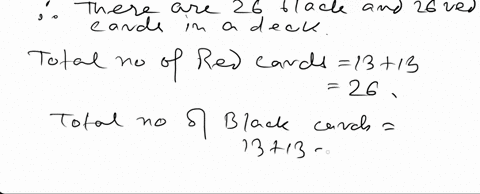 ∴ There are 26 black and 26 red
cards in a deck.
Total no of Red cards = 13 + 13
= 26.
Total no of Black cards =
13 + 13 -